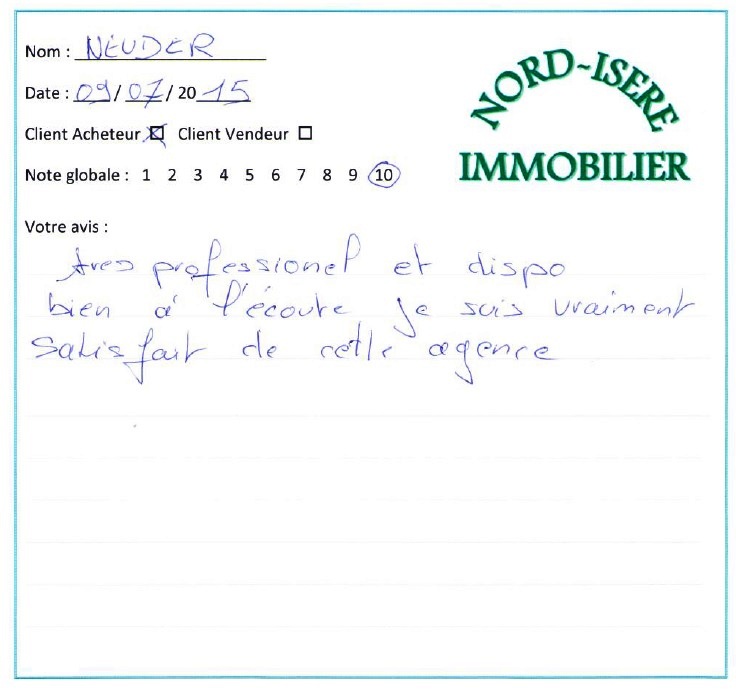 Nom : NEUDER
Date : 09/07/2015
Client Acheteur ☒ Client Vendeur ☐
Note globale : 1 2 3 4 5 6 7 8 9 10
NORD-ISERE
IMMOBILIER
Votre avis :
tres professionel et dispo
bien à l'écoute je suis vraiment
satisfait de cette agence